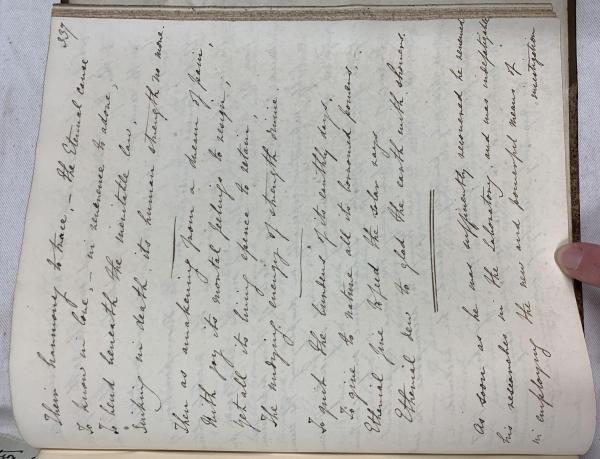 337
Their harmony to trace, – the Eternal cause
To know in love, – in reverence to adore,
To bend beneath the inevitable law,
Sinking in death its human strength no more.
Then as awakening from a dream of pain,
With joy its mortal feelings to resign,
Yet all its living essence to retain,
The undying energy of strength divine.
To quit the burdens of its earthly days,
To give to nature all its borrowed powers,
Etherial fire to feed the solar rays
Etherial dew to glad the earth with showers.
As soon as he was sufficiently recovered he renewed
his researches in the laboratory, and was indefatigable
in employing the new and powerful means of
investigation